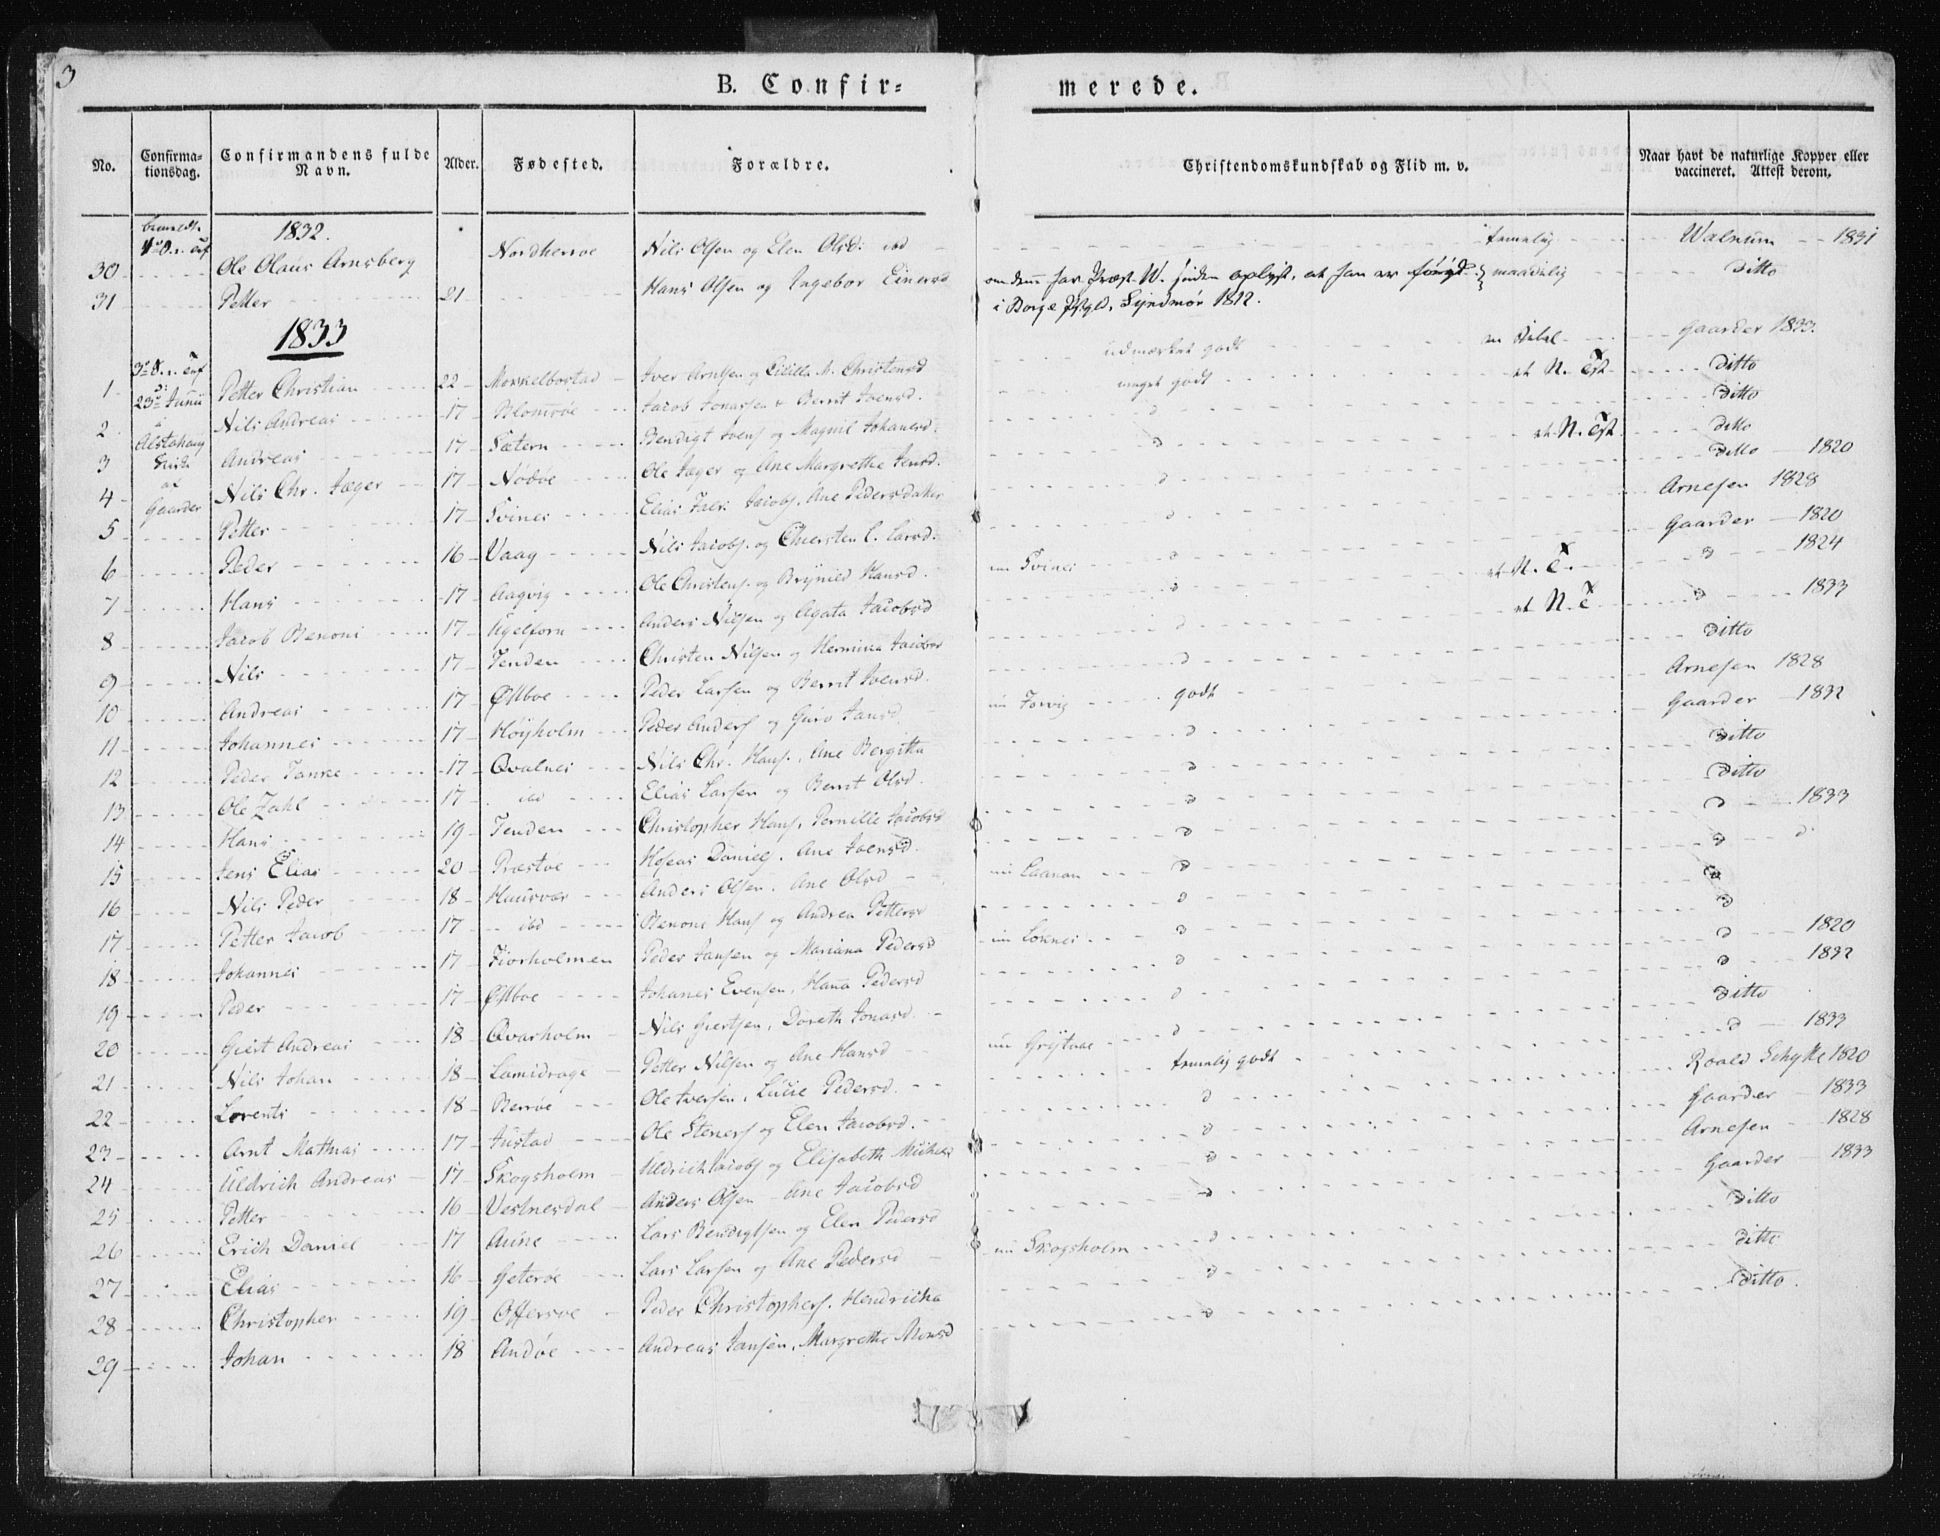 3
B. Confir=
merede.
No. Confirma-tionsdag. Confirmandens fulde Navn. Alder. Fødested. Forældre. Christendomskundskab og Flid m. v. Naar havt de naturlige Kopper eller vaccineret. Attest derom.
1832.
30 Ole Olaus Arnsberg Nordherroe Nils Olsen og Elen Olsd: ibd temelig Walnum 1831
31 Petter 21 Hans Olsen og Ingebor Einersd om denn har Præst W. siden oplyst, at han er maadelig ditto
i Borge Syndmør 1812.
1833
1 23de Junii Petter Christian 22 Iver Arntsen og Cicilla M. Christensd udmærket godt Gaarder 1833.
2 i Nils Andreas 17 Blomsøe Jacob Jonassen & Berrit Ivensd. meget godt et N. Tst ditto
3 Alstahaug Kirke Andreas 17 Sætern Bendigt Ivens og Magnil Johanesd: d ditto
4 af Nils Chr. Jæger 17 Nødøe Ole Jæger og Ane Margrethe Jensd. d et N. Tst ditto
5 Gaarder Petter 17 Svines Elias Jacobs. Ane Pedersdater d ditto 1820
6 Peder 16 Vaag Nils Jacobs. og Chiersten C. Larsd: d Arnesen 1828
7 Hans 17 Aagvig Ole Christens. og Brynild Hansd. nu Svines d Gaarder 1820
8 Jacob Benoni 17 Anders Nilsen og Agata Jacobsd d et N. T. d 1824
9 Nils 17 Tenden Christen Nilsen og Hermina Jacobsd d et N. T d 1833
10 Andreas 17 Østboe Peder Larsen og Berrit Ivensd. nu Forvig godt ditto
11 Johannes 17 Høyholm Peder Anders og Guro Jansd d Arnesen 1828
12 Peder Tanke 17 Qvalnes Nils Chr. Hans. Ane Bergitta d Gaarder 1832
13 Ole Zahl 17 ibd Elias Larsen og Berrit Olsd. d ditto
14 Hans 19 Tenden Christopher Hans, Pernille Jacobsd d ditto
15 Jens Elias 20 Præstøe Hoseas Daniels. Ane Ivensd. nu Laanan d d 1833
16 Nils Peder 18 Anders Olsen. Ane Olsd d d d
17 Petter Jacob 17 ibd Benone Hans og Andrea Pettersd nu Loknes d d
18 Johannes 17 Fiorholmen Peder Jansen og Mariana Pedersd d d
19 Peder 17 Østboe Johanes Evensen, Hana Pedersd d d 1820
20 Giert Andreas 18 Qvarholm Nils Giertsen, Doreth Jonasd. nu d d 1832
21 Nils Johan 18 Lamidrage Petter Nilsen og Ane Hansd temelig godt ditto
22 Lorents 18 Rerrøe Ole Iversen, Lucie Pedersd. d d 1833
23 Arnt Mathias 17 Justad Ole Steners og Elen Jacobsd. d Roald Schytte 1820
24 Uldrich Andreas 17 Skogsholm Uldrich Jacobs og Elisabeth Michelsd d Gaarder 1833
25 Petter 16 Vestnesdal Anders Olsen Ane Jacobsd d Arnesen 1828
26 Erich Daniel 17 Aune Lars Bendigtsen og Elen Pedersd nu Skogsholm d Gaarder 1833
27 Elias 16 Geterøe Lars Larsen og Ane Pedersd d ditto
28 Christopher 19 Offersøe Peder Christophers. Hendricha d ditto
29 Johan 18 Andøe Andreas Jansen, Margrethe Monsd ditto.